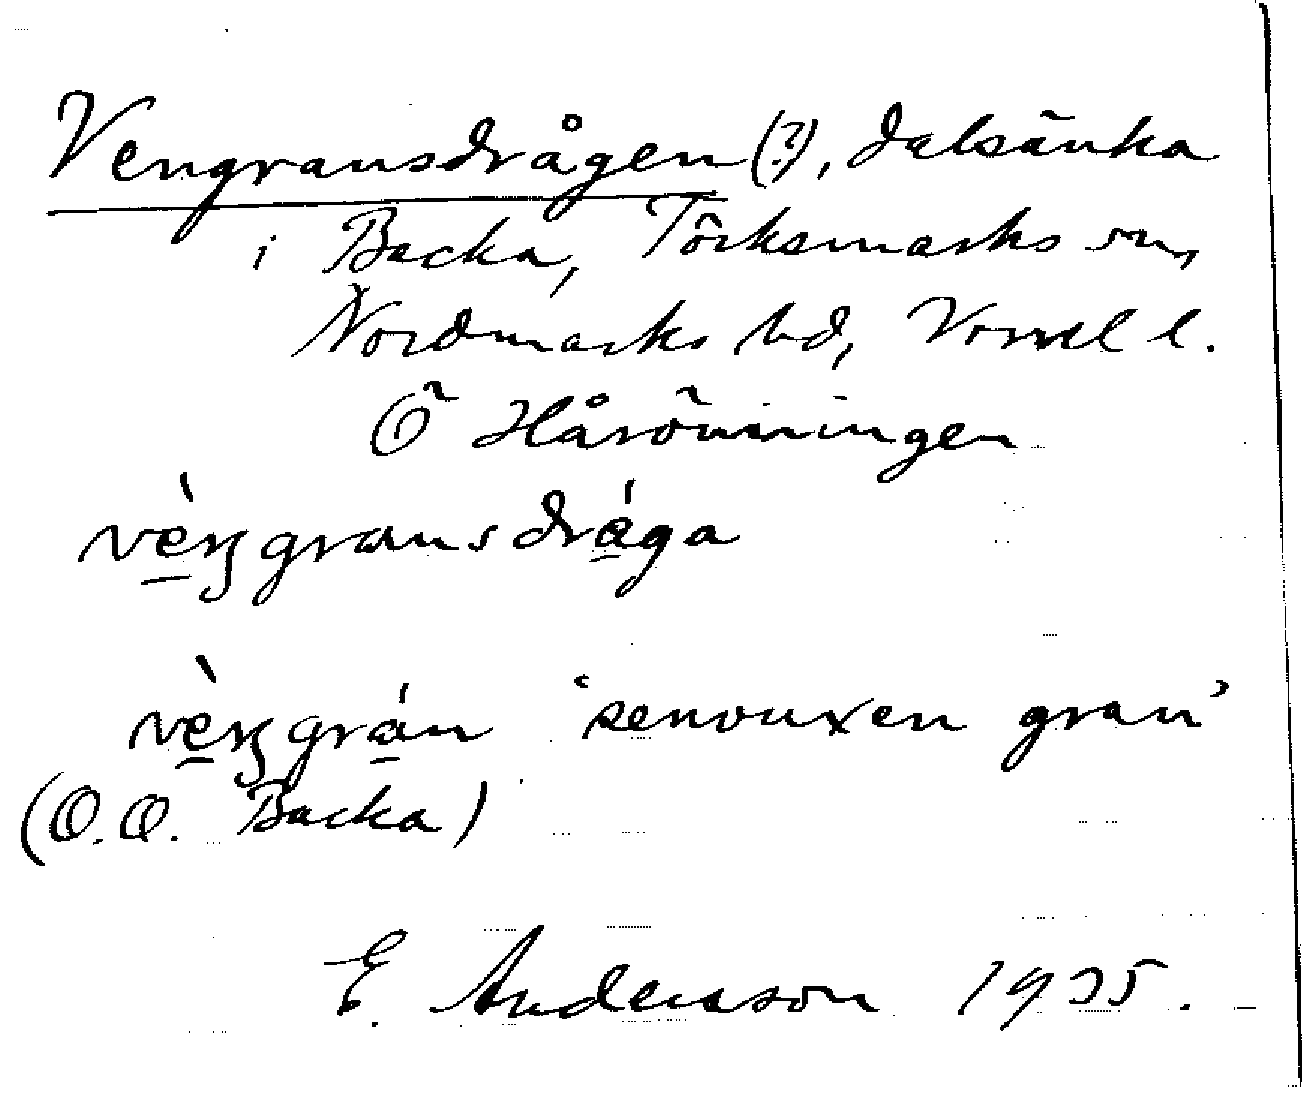 Vengransdrågen (?), dalsänka
i Backa, Töcksmarks sn,
Nordmarks hd, Vrml l.
Ö Håröningen
vèŋgransdrága
vèŋgrán 'senvuxen gran'
(O.O. Backa)
E. Andersson 1935.